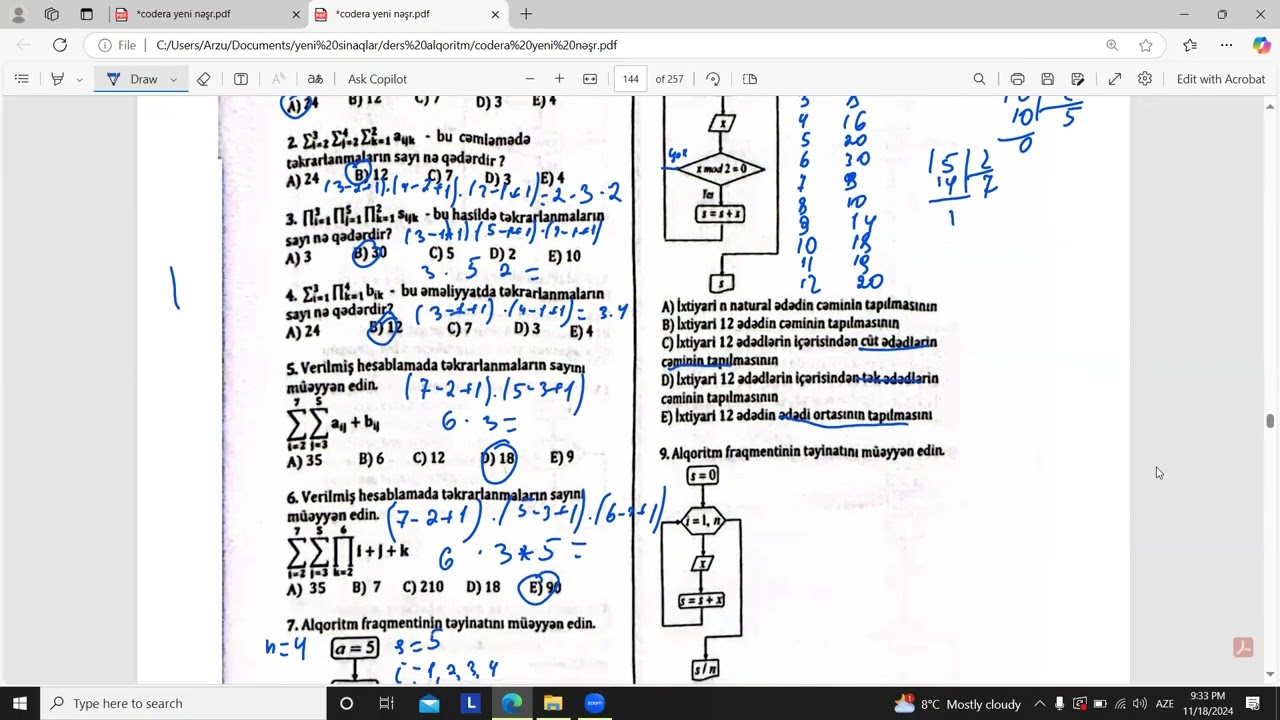 *codera yeni nəşr.pdf
*codera yeni nəşr.pdf
File
C:/Users/Arzu/Documents/yeni%20sinaqlar/ders%20alqoritm/codera%20yeni%20nəşr.pdf
Draw
Ask Copilot
144
of 257
Edit with Acrobat
A) 24 B) 12 C) 7 D) 3 E) 4
2. Σ³ᵢ₌₂ Σ⁴ⱼ₌₂ Σ²ₖ₌₁ aᵢⱼₖ - bu cəmləmədə
təkrarlanmaların sayı nə qədərdir ?
A) 24 B) 12 C) 7 D) 3 E) 4
(3-2+1).(4-2+1).(2-1+1)=2·3·2
3. ∏³ᵢ₌₁ ∏⁵ⱼ₌₁ ∏²ₖ₌₁ sᵢⱼₖ - bu hasildə təkrarlanmaların
sayı nə qədərdir? (3-1+1)(5-1+1)·(2-1+1)
A) 3 B) 30 C) 5 D) 2 E) 10
3 · 5 2 =
4. Σ³ᵢ₌₁ ∏⁴ₖ₌₁ bᵢₖ - bu əməliyyatda təkrarlanmaların
sayı nə qədərdir? (3-1+1)·(4-1+1)=3.4
A) 24 B) 12 C) 7 D) 3 E) 4
5. Verilmiş hesablamada təkrarlanmaların sayını
müəyyən edin. (7-2+1).(5-3+1)
7 5
ΣΣ aᵢⱼ + bᵢⱼ 6 · 3 =
i=2 j=3
A) 35 B) 6 C) 12 D) 18 E) 9
6. Verilmiş hesablamada təkrarlanmaların sayını
müəyyən edin. (7-2+1).(5-3+1).(6-2+1)
7 5 6
ΣΣ∏ i + j + k 6 · 3 * 5 =
i=2 j=3 k=2
A) 35 B) 7 C) 210 D) 18 E) 90
7. Alqoritm fraqmentinin təyinatını müəyyən edin.
n=4 a = 5 s=5
i=1,2,3,4
x
x mod 2 = 0
Yes
s = s + x
s
4 16
5 20
6 30
8 10
9 14
10 18
12 20
10 5
0
15 2
14 7
1
A) İxtiyari n natural ədədin cəminin tapılmasının
B) İxtiyari 12 ədədin cəminin tapılmasının
C) İxtiyari 12 ədədlərin içərisindən cüt ədədlərin
cəminin tapılmasının
D) İxtiyari 12 ədədlərin içərisindən tək ədədlərin
cəminin tapılmasının
E) İxtiyari 12 ədədin ədədi ortasının tapılmasını
9. Alqoritm fraqmentinin təyinatını müəyyən edin.
s = 0
i = 1, n
x
s = s + x
s / n
Type here to search
8°C Mostly cloudy
AZE
9:33 PM
11/18/2024